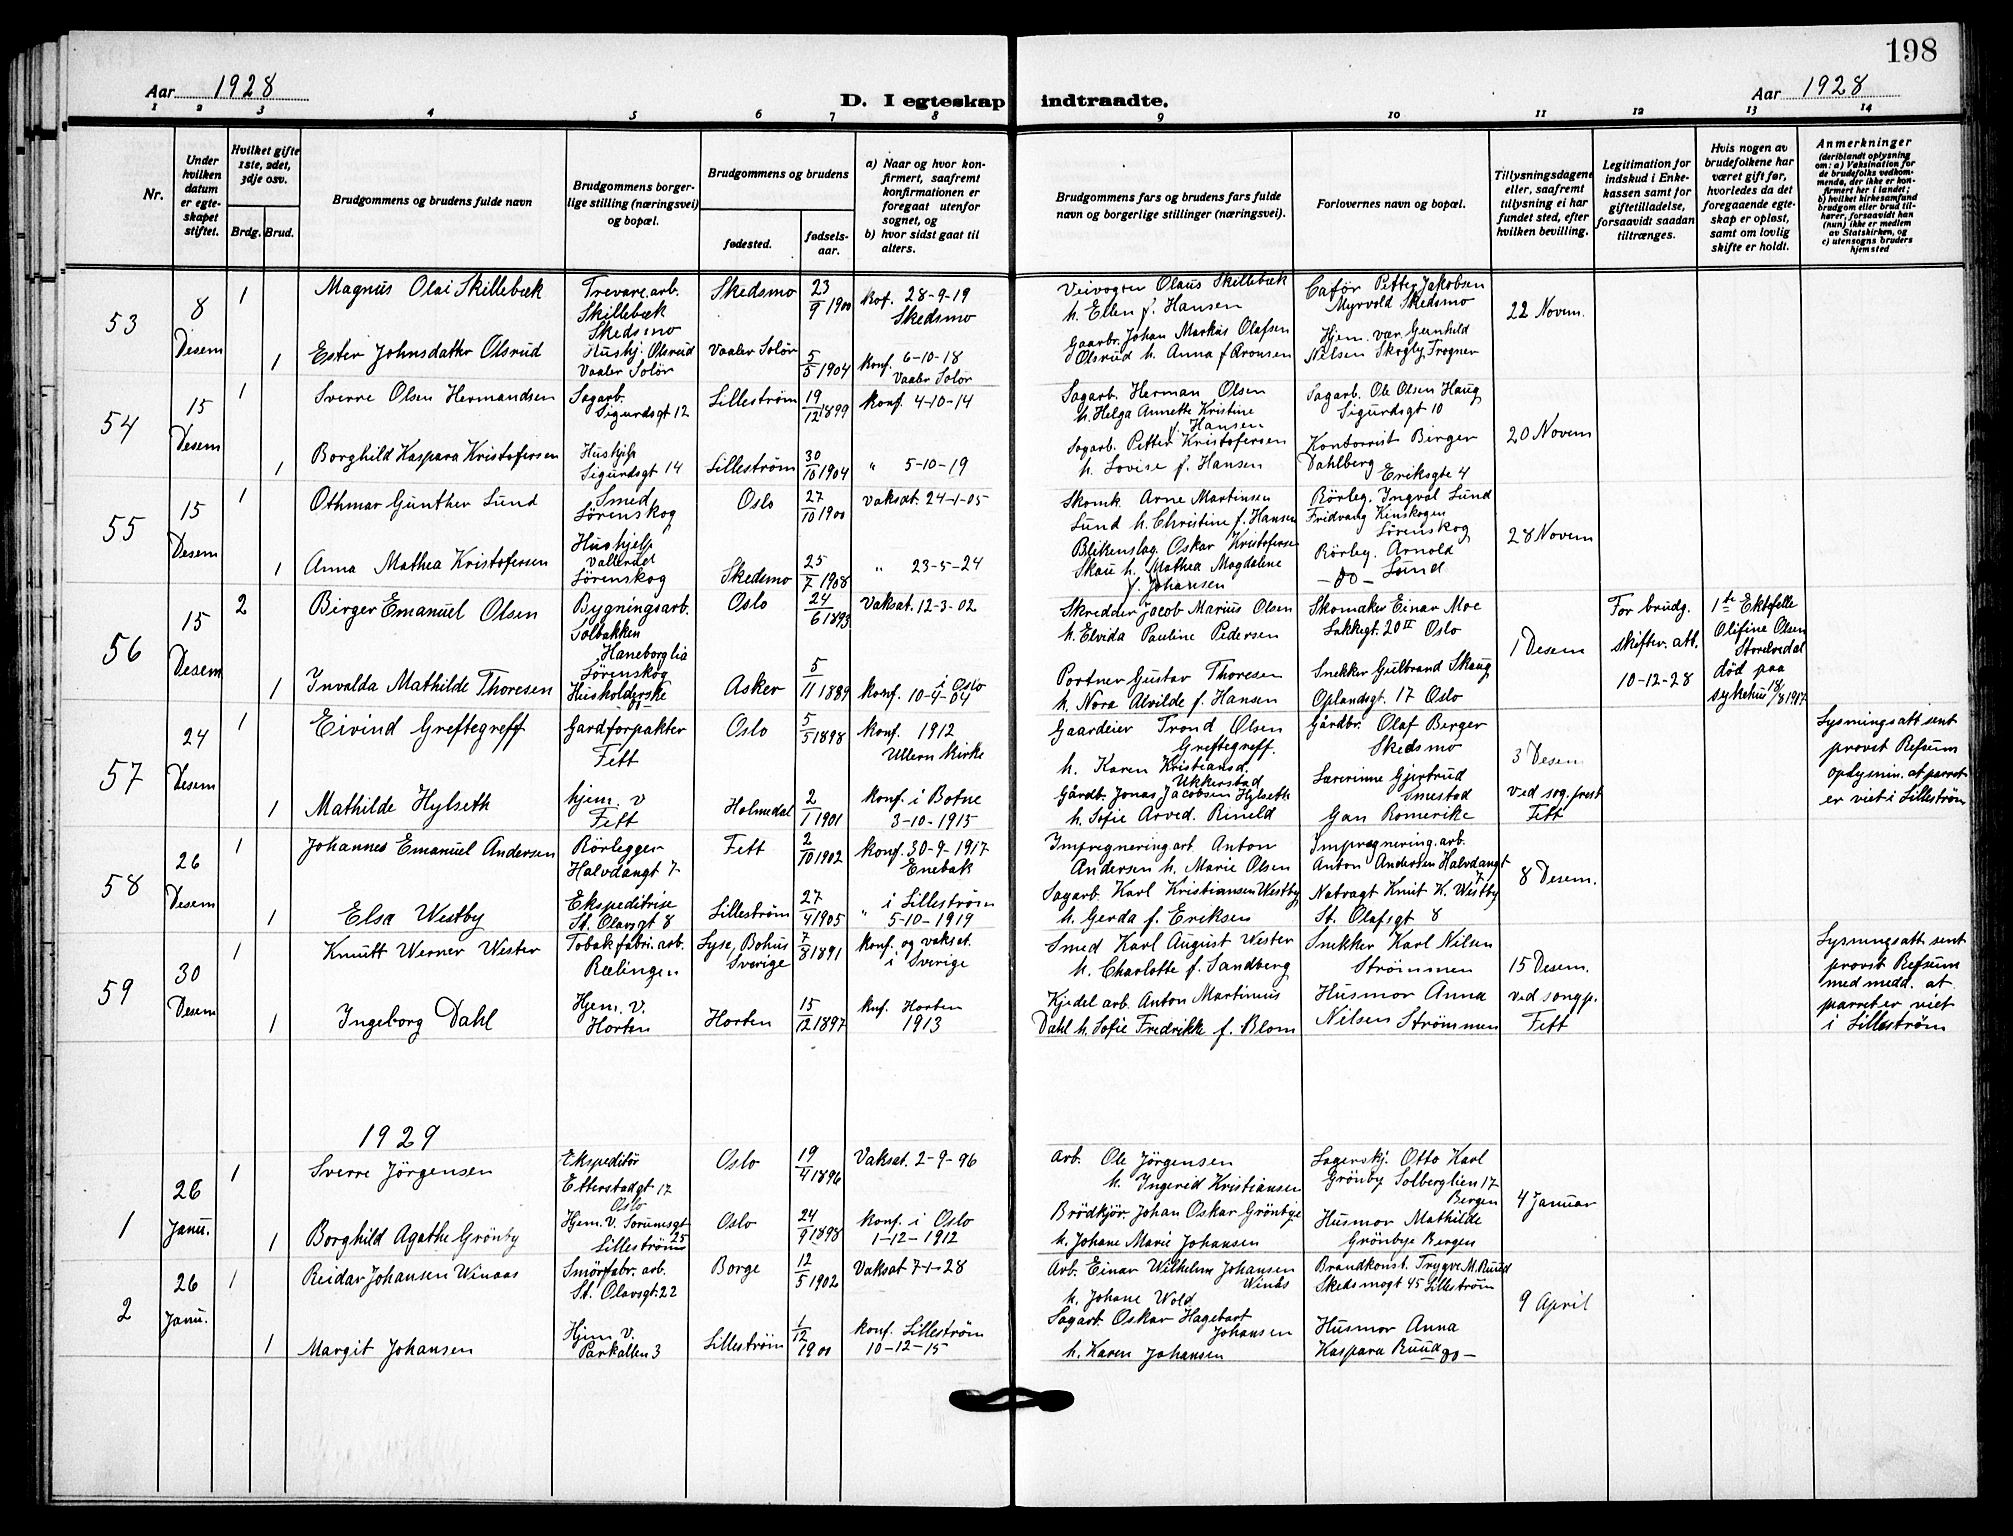 198
Aar 1928
D. I egteskap indtraadte.
Aar 1928
1 2 3 4 5 6 7 8 9 10 11 12 13 14
Nr.
Under hvilken datum er egteskapet stiftet.
Hvilket gifte 1ste, 2det, 3dje osv.
Brdg. Brud.
Brudgommens og brudens fulde navn
Brudgommens borgerlige stilling (næringsvei) og bopæl.
Brudgommens og brudens
fødested.
fødselsaar.
a) Naar og hvor konfirmert, saafremt konfirmationen er foregaat utenfor sognet, og
b) hvor sidst gaat til alters.
Brudgommens fars og brudens fars fulde navn og borgerlige stillinger (næringsvei).
Forlovernes navn og bopæl.
Tillysningsdagene eller, saafremt tillysning ei har fundet sted, efter hvilken bevilling.
Legitimation for indskud i Enkekassen samt for giftetilladelse, forsaavidt saadan tiltrænges.
Hvis nogen av brudefolkene har været gift før, hvorledes da det foregaaende egteskap er opløst, samt om lovlig skifte er holdt.
Anmerkninger
(deriblandt oplysning om: a) Vaksination for de brudefolks vedkommende, der ikke er konfirmert her i landet; b) hvilket kirkesamfund brudgom eller brud tilhører, forsaavidt han (hun) ikke er medlem av Statskirken, og c) utensogns bruders hjemsted
53
8 Desem
1
Magnus Olai Skillebæk
Trevarearb.
Skillebæk
Skedsmo
Skedsmo
23/9 1900
kof. 28-9-19
Skedsmo
Veivogter Olaus Skillebæk
h. Ellen f. Hansen
Petter Jakobsen
Myrvold Skedsmo
22 Novem.
1
Ester Johnsdatter Olsrud
Hushj. Olsrud
Vaaler Solør
Vaaler Solør
5/5 1904
Konf. 6-10-18
Vaaler Solør
Gaarbr. Johan Markus Olafsen
Olsrud h. Anna f. Aronsen
Hjem. vær. Gunhild
Nilsen Skogly Frogner
54
15 Desem
1
Sverre Olsen Hermandsen
Sagarb.
Sigurdsgt 12
Lilleström
19/12 1899
Konf. 4-10-14
Sagarb. Herman Olsen
h. Helga Annette Kristine
f. Hansen
Sagarb. Ole Olsen Haug
Sigurdsgt 10
20 Novem
1
Borghild Kaspara Kristofersen
Hushjelp
Sigurdsgt 14
Lilleström
30/10 1904
" 5-10-19
Sagarb. Petter Kristofersen
h. Lovise f. Hansen
Kontorrist Birger
Dahlberg
Eriksgte 4
55
15 Desem
1
Othmar Gunther Lund
Smed
Sörenskog
Oslo
27/10 1900
Vaksat. 24-1-05
Skomk. Arne Martinsen
Lund h. Christine f. Hansen
Rörleg. Ingvål Lund
Fridvang Kinskogen
Sörenskog
28 Novem
1
Anna Mathea Kristofersen
Hushjelp
Vallerdal
Sörenskog
Skedsmo
25/7 1908
" 23-5-24
Blikenslag. Oskar Kristofersen
Skau h. Mathea Magdalene
f. Johansen
Rörleg. Arnold
-do- Lund
56
15 Desem
2
Birger Emanuel Olsen
Bygningsarb.
Solbakken
Haneborglia
Sörenskog
Oslo
24/6 1893
Vaksat. 12-3-02
Skredder Jacob Marius Olsen
h. Elvida Pauline Pedersen
Skomaker Einar Moe
Lakkegt. 20 II Oslo
1 Desem
For brudg.
skiftev. att.
10-12-28
1te Ektefelle
Olifine Olsen
Storelvedal
död paa
sykehus 18/8 1917
1
Invalda Mathilde Thoresen
Husholderske
-do-
Asker
5/11 1889
konf. i Oslo
10-4-04
Portner Gustav Thoresen
h. Nora Alvilde f. Hansen
Snekker Gulbrand Skaug
Oplandsgt. 17 Oslo
57
24 Desem
1
Eivind Greftegreff
Gardforpakter
Fett
Oslo
5/5 1898
konf. 1912
Ullern Kirke
Gaardeier Trond Olsen
Greftegreff.
h. Karen Kristiansd.
Ukkerstad
Gårdbr. Olaf Berger
Skedsmo
3 Desem
ved sog. prest
Fett
Lysningsatt sent
provst Refsum
oplysnin. at parret
er viet i Lilleström
1
Mathilde Hylseth
hjem. v
Fett
Holmedal
2/1 1901
Konf. i Botne
3-10-1915
Gårdb. Jonas Jacobsen Hylseth
h. Sofie Arved. Rineld
Lærerinne Gjertrud
Smestad
Gan Romerike
58
26 Desem
1
Johannes Emanuel Andersen
Rörlegger
Halvdangt 7
Fett
2/10 1902
Konf. 30-9-1917
Enebak
Impregneringart. Anton
Andersen h. Marie Olsen
Impregnering. arb.
Anton Andersen Halvdangt
7
8 Desem.
1
Elsa Westby
Ekspeditrise
St. Olavsgt 8
Lilleström
27/4 1905
" i Lilleström
5-10-1919
Sagarb. Karl Kristiansen Westby
h. Gerda f. Eriksen
Natvagt Knut K. Westby
St. Olafsgt 8
59
30 Desem
1
Knutt Werner Wester
Tobakfabri. arb.
Rælingen
Lyse, Bohus
Sverige
7/8 1891
konf. og vaksat.
i Sverige
Smed Karl August Wester
h. Charlotte f. Sandberg
Snekker Karl Nilsen
Strømmen
15 Desem.
ved songp.
Fett
Lysningsatt sent
provst Refsum
med medd. at
parret er viet
i Lilleström
1
Ingeborg Dahl
Hjem. V.
Horten
Horten
15/12 1897
Knf. Horten
1913
Kjedel arb. Anton Martinius
Dahl h. Sofie Fredrikke f. Blom
Husmor Anna
Nilsen Strømmen
1929
1
26 Janu.
1
Sverre Jörgensen
Ekspeditør
Etterstadgt 17
Oslo
Oslo
19/4 1896
Vaksat. 2-9-96
Arb. Ole Jörgensen
h. Ingerid Kristiansen
Lagerskj. Otto Karl
Grönby Solberglien 17
Bergen
4 Januar
1
Borghild Agathe Grönby
Hjem. V. Sorumsgt
25
Lilleström
Oslo
24/9 1898
konf. i Oslo
1-12-1912
Brödkjör. Johan Oskar Grönbye
h. Johane Marie Johansen
Husmor Mathilde
Grönbye Bergen
2
26 Janu.
1
Reidar Johansen Winaas
Smörfabr. arb.
St. Olavsgt. 22
Borge
12/5 1902
Vaksat 7-1-28
Arb. Einar Wilhelm Johansen
Winås
h. Johane Wold
Brandkonst. Trygve M. Ruud
Skedsmogt 45 Lilleström
9 April
1
Margit Johansen
Hjem. V.
Parkallen 3
Lilleström
1/12 1900
Konf. Lilleström
10-12-15
Sagarb. Oskar Hagebart
Johansen
h. Karen Johansen
Husmor Anna
Kaspara Ruud -do-